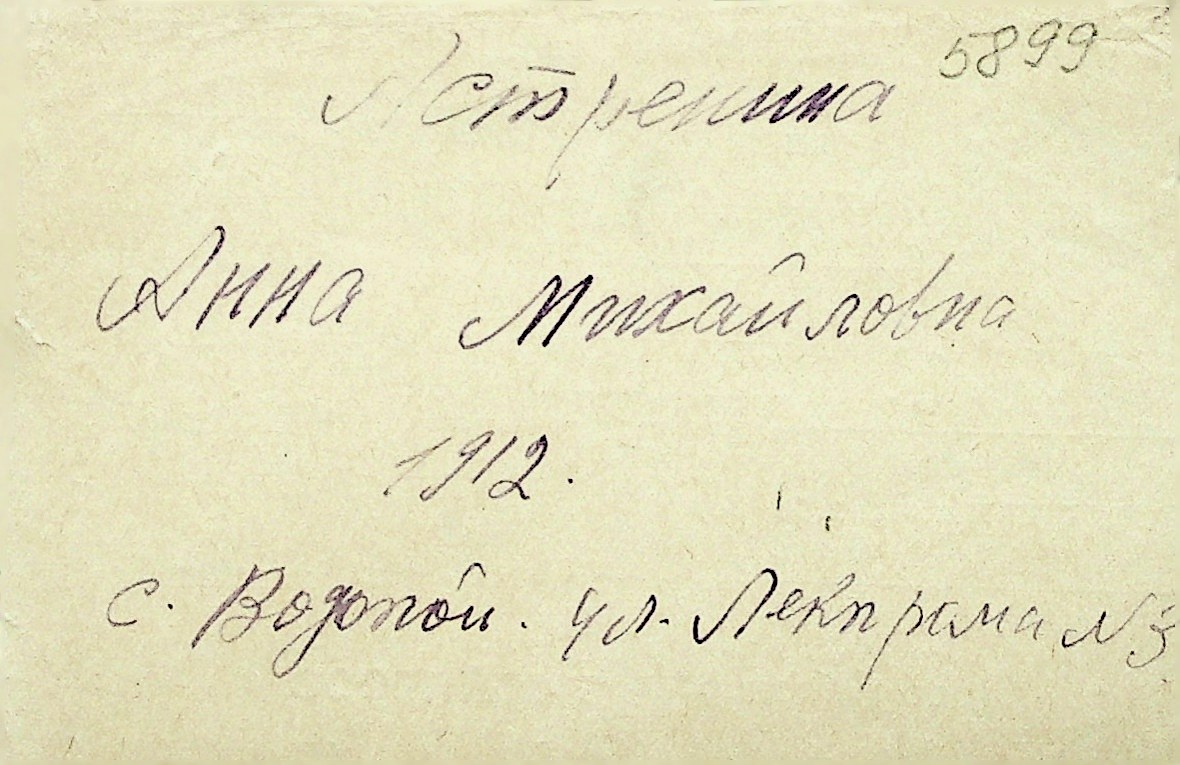 5899
Астренина
Анна Михайловна
1912.
с. Водопой. ул. Лекпрама N 3